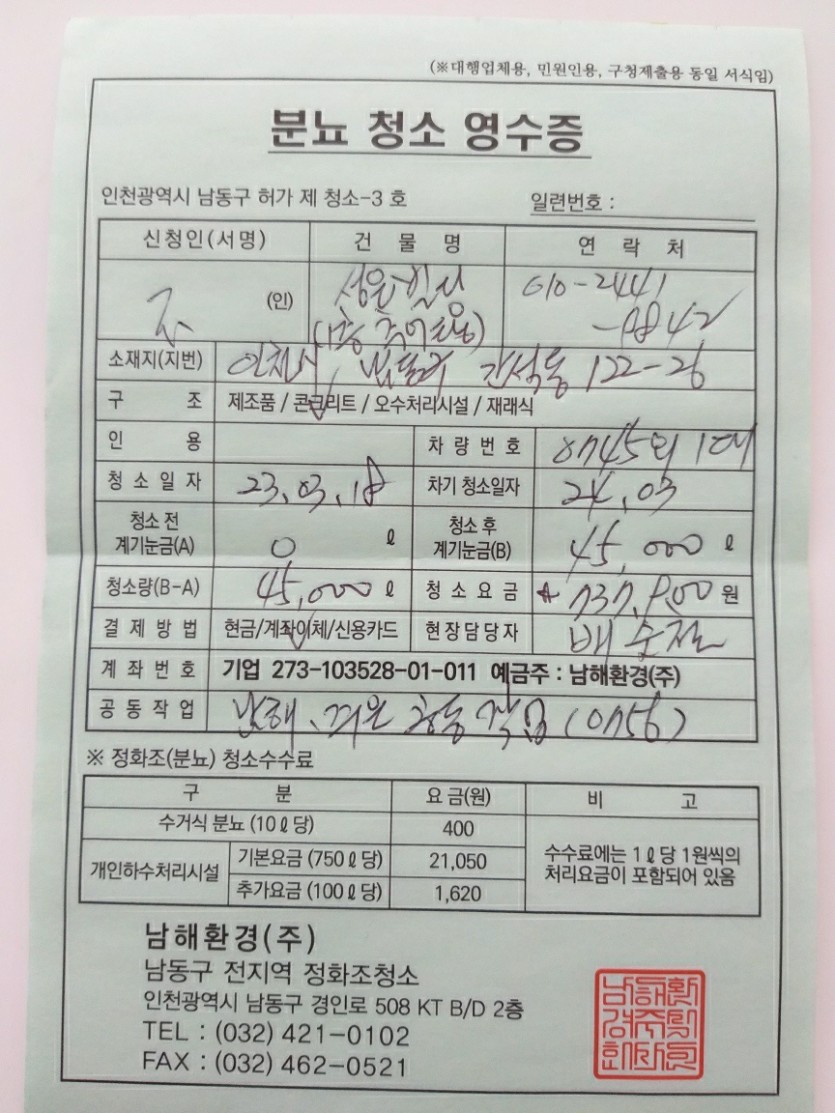 (※대행입체용, 민원인용, 구청제출용 동일 서식임)
분뇨 청소 영수증
인천광역시 남동구 허가 제 청소-3 호
일련번호 :
신청인(서명) 건 물 명 연 락 처
(인) 성운빌라 010-2441
소재지(지번) 인천시 남동구 간석동 122-26
구 조 제조품 / 콘크리트 / 오수처리시설 / 재래식
인 용 차 량 번 호 8745외 1대
청 소 일 자 23.03.18 차기 청소일자 24.03
청소 전 계기눈금(A) 0 ℓ 청소 후 계기눈금(B) 45,000 ℓ
청소량(B-A) 45,000 ℓ 청 소 요 금 737,900 원
결 제 방 법 현금/계좌이체/신용카드 현장담당자
계 좌 번 호 기업 273-103528-01-011 예금주 : 남해환경(주)
공 동 작 업 남해, 공동 작업
※ 정화조(분뇨) 청소수수료
구 분 요 금(원) 비 고
수거식 분뇨 (10ℓ당) 400
개인하수처리시설 기본요금 (750ℓ당) 21,050
추가요금 (100ℓ당) 1,620
수수료에는 1ℓ당 1원씩의
처리요금이 포함되어 있음
남해환경(주)
남동구 전지역 정화조청소
인천광역시 남동구 경인로 508 KT B/D 2층
TEL : (032) 421-0102
FAX : (032) 462-0521